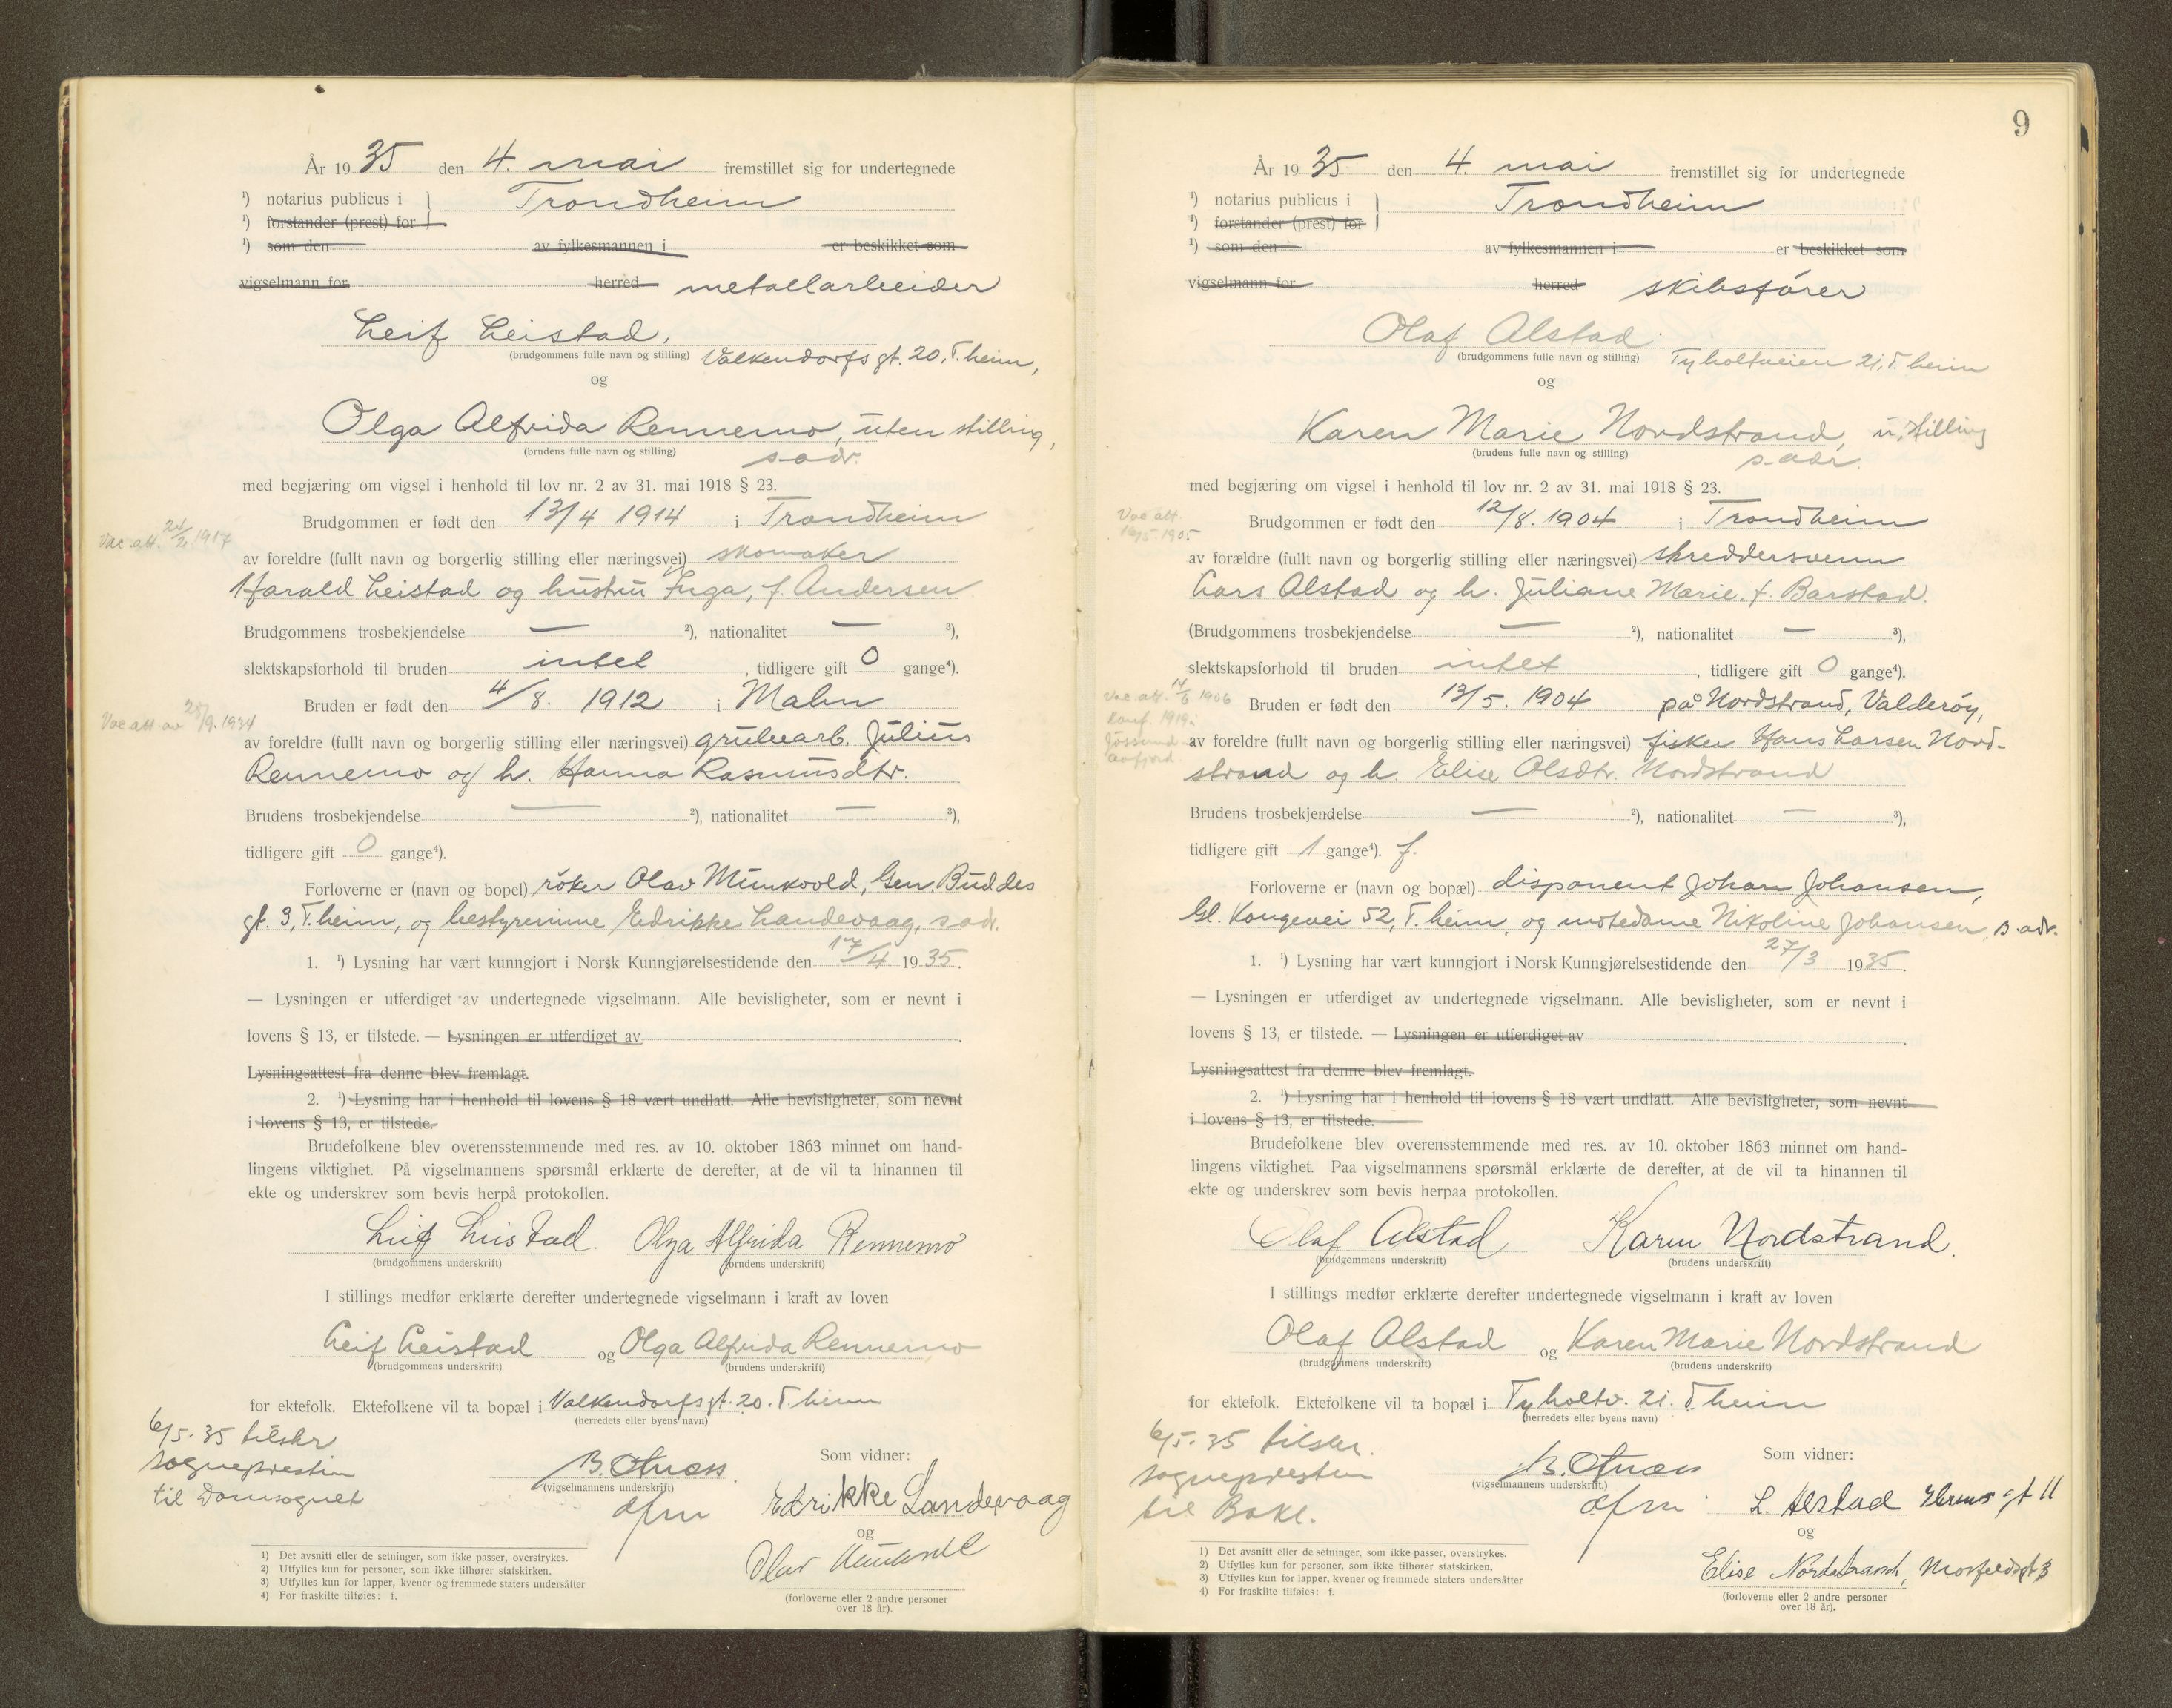 År 1935 den 4. mai fremstillet sig for undertegnede
¹) notarius publicus i } Trondheim
¹) forstander (prest) for
¹) som den av fylkesmannen i er beskikket som
vigselmann for herred metallarbeider
Leif Leistad,
(brudgommens fulle navn og stilling) Valkendorfsgt. 20, T.heim,
og
Olga Alfrida Rennemo, uten stilling,
(brudens fulle navn og stilling) s. adr.
med begjæring om vigsel i henhold til lov nr. 2 av 31. mai 1918 § 23.
Vac. att. 1917
Brudgommen er født den 13/4 1914 i Trondheim
av foreldre (fullt navn og borgerlig stilling eller næringsvei) skomaker
Harald Leistad og hustru Inga, f. Andersen
Brudgommens trosbekjendelse — ²), nationalitet — ³),
slektskapsforhold til bruden intet, tidligere gift 0 gange⁴).
Bruden er født den 4/8. 1912 i Malm
Vac att av /9. 1934
av foreldre (fullt navn og borgerlig stilling eller næringsvei) gruvearb. Julius
Rennemo og h. Hanna Rasmusdtr.
Brudens trosbekjendelse — ²), nationalitet — ³),
tidligere gift 0 gange⁴).
Forloverne er (navn og bopel) røker Olav Munkvold, Gen. Buddes
gt. 3, T.heim, og bestyrerinne Edrikke Landevaag, s. adr.
1. ¹) Lysning har vært kunngjort i Norsk Kunngjørelsestidende den 17/4 1935.
— Lysningen er utferdiget av undertegnede vigselmann. Alle bevisligheter, som er nevnt i
lovens § 13, er tilstede. — Lysningen er utferdiget av .
Lysningsattest fra denne blev fremlagt.
2. ¹) Lysning har i henhold til lovens § 18 vært undlatt. Alle bevisligheter, som nevnt
i lovens § 13, er tilstede.
Brudefolkene blev overensstemmende med res. av 10. oktober 1863 minnet om hand-
lingens viktighet. På vigselmannens spørsmål erklærte de derefter, at de vil ta hinannen til
ekte og underskrev som bevis herpå protokollen.
Leif Leistad. Olga Alfrida Rennemo
(brudgommens underskrift) (brudens underskrift)
I stillings medfør erklærte derefter undertegnede vigselmann i kraft av loven
Leif Leistad og Olga Alfrida Rennemo
(brudgommens underskrift) (brudens underskrift)
for ektefolk. Ektefolkene vil ta bopæl i Valkendorfsgt. 20. T.heim
(herredets eller byens navn)
6/5-35 tilskr
sognepresten
til Domsognet
Som vidner:
(vigselmannens underskrift)
Edrikke Landevaag
og
Olav Munkvold
(forloverne eller 2 andre personer
over 18 år).
1) Det avsnitt eller de setninger, som ikke passer, overstrykes.
2) Utfylles kun for personer, som ikke tilhører statskirken.
3) Utfylles kun for lapper, kvener og fremmede staters undersåtter
4) For fraskilte tilføies: f.
9
År 1935 den 4. mai fremstillet sig for undertegnede
¹) notarius publicus i } Trondheim
¹) forstander (prest) for
¹) som den av fylkesmannen i er beskikket som
vigselmann for herred skibsfører
Olaf Alstad
(brudgommens fulle navn og stilling) Tyholtveien 21, T.heim
og
Karen Marie Nordstrand, u. stilling
(brudens fulle navn og stilling) s. adr.
med begjæring om vigsel i henhold til lov nr. 2 av 31. mai 1918 § 23.
Vac att. 16/5. 1905
Brudgommen er født den 12/8. 1904 i Trondheim
av forældre (fullt navn og borgerlig stilling eller næringsvei) skreddersvenn
Lars Alstad og h. Juliane Marie, f. Barstad.
(Brudgommens trosbekjendelse — ²), nationalitet — ³),
slektskapsforhold til bruden intet, tidligere gift 0 gange⁴).
Vac. att. 14/6 1906
konf. 1919 i
Jøssund
Aafjord
Bruden er født den 13/5. 1904 på Nordstrand, Valderøy,
av foreldre (fullt navn og borgerlig stilling eller næringsvei) fisker Hans Larsen Nord-
strand og h. Elise Olsdtr. Nordstrand
Brudens trosbekjendelse — ²), nationalitet — ³),
tidligere gift 1 gange⁴). f.
Forloverne er (navn og bopæl) disponent Johan Johansen,
Gl. Kongevei 52, T.heim, og motedame Nikoline Johansen, s. adr.
1. ¹) Lysning har vært kunngjort i Norsk Kunngjørelsestidende den 27/3 1935.
— Lysningen er utferdiget av undertegnede vigselmann. Alle bevisligheter, som er nevnt i
lovens § 13, er tilstede. — Lysningen er utferdiget av .
Lysningsattest fra denne blev fremlagt.
2. ¹) Lysning har i henhold til lovens § 18 vært undlatt. Alle bevisligheter, som nevnt
i lovens § 13, er tilstede.
Brudefolkene blev overensstemmende med res. av 10. oktober 1863 minnet om hand-
lingens viktighet. Paa vigselmannens spørsmål erklærte de derefter, at de vil ta hinannen til
ekte og underskrev som bevis herpaa protokollen.
Olaf Alstad Karen Nordstrand.
(brudgommens underskrift) (brudens underskrift)
I stillings medfør erklærte derefter undertegnede vigselmann i kraft av loven
Olaf Alstad og Karen Marie Nordstrand
(brudgommens underskrift) (brudens underskrift)
for ektefolk. Ektefolkene vil ta bopæl i Tyholtv. 21. T.heim
(herredets eller byens navn)
6/5-35 tilskr.
sognepresten
til Bakl.
Som vidner:
(vigselmannens underskrift.)
L. Alstad
og
Elise Nordstrand,
(forloverne eller 2 andre personer
over 18 år).
1) Det avsnitt eller de setninger, som ikke passer, overstrykes.
2) Utfylles kun for personer, som ikke tilhører statskirken.
3) Utfylles kun for lapper, kvener og fremmede staters undersåtter
4) For fraskilte tilføies: f.